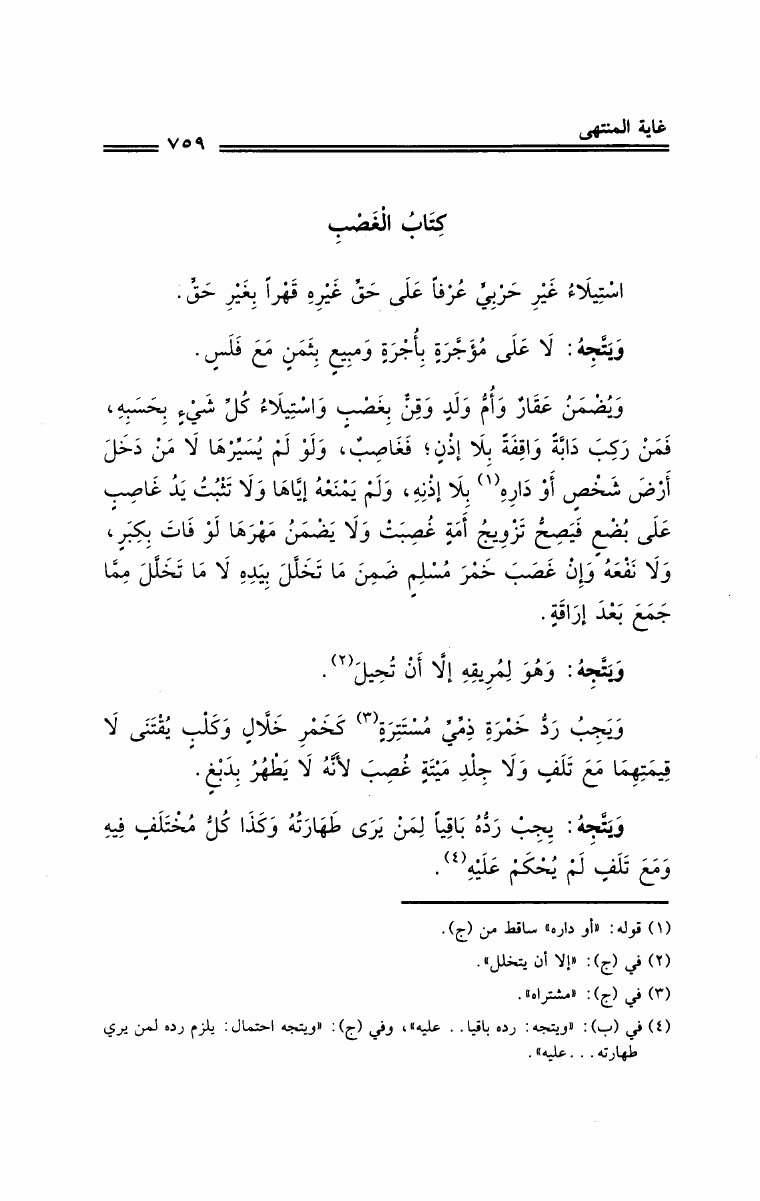 غاية المنتهى
٧٥٩
كِتَابُ الْغَصْبِ
اسْتِيلَاءُ غَيْرِ حَرْبِيٍّ عُرْفاً عَلَى حَقِّ غَيْرِهِ قَهْراً بِغَيْرِ حَقٍّ.
وَيَتَّجِهُ: لَا عَلَى مُؤَجَّرَةٍ بِأُجْرَةٍ وَمبِيعٍ بِثَمَنٍ مَعَ فَلَسٍ.
وَيُضْمَنُ عَقَارٌ وَأُمُّ وَلَدٍ وَقِنٌّ بِغَصْبٍ وَاسْتِيلَاءُ كُلِّ شَيْءٍ بِحَسَبِهِ،
فَمَنْ رَكِبَ دَابَّةً وَاقِفَةً بِلَا إذْنٍ؛ فَغَاصِبٌ، وَلَوْ لَمْ يُسَيِّرْهَا لَا مَنْ دَخَلَ
أَرْضَ شَخْصٍ أَوْ دَارِهِ(١) بِلَا إذْنِهِ، وَلَمْ يَمْنَعْهُ إيَّاهَا وَلَا تَثْبُتُ يَدُ غَاصِبٍ
عَلَى بُضْعٍ فَيَصِحُّ تَزْوِيجُ أَمَةٍ غُصِبَتْ وَلَا يَضْمَنُ مَهْرَهَا لَوْ فَاتَ بِكِبَرٍ،
وَلَا نَفْعَهُ وَإِنْ غَصَبَ خَمْرَ مُسْلِمٍ ضَمِنَ مَا تَخَلَّلَ بِيَدِهِ لَا مَا تَخَلَّلَ مِمَّا
جَمَعَ بَعْدَ إرَاقَةٍ.
وَيَتَّجِهُ: وَهُوَ لِمُرِيقِهِ إلَّا أَنْ تُحِيلَ(٢).
وَيَجِبُ رَدُّ خَمْرَةِ ذِمِّيٍّ مُسْتَتِرَةٍ(٣) كَخَمْرِ خَلَّالٍ وَكَلْبٍ يُقْتَنَى لَا
قِيمَتِهِمَا مَعَ تَلَفٍ وَلَا جِلْدِ مَيْتَةٍ غُصِبَ لأَنَّهُ لَا يَطْهُرُ بِدَبْغٍ.
وَيَتَّجِهُ: يجِبْ رَدُّهُ بَاقِياً لِمَنْ يَرَى طَهَارَتُهُ وَكَذَا كُلُّ مُخْتَلَفٍ فِيهِ
وَمَعَ تَلَفٍ لَمْ يُحْكَمْ عَلَيْهِ(٤).
(١) قوله: «أو داره» ساقط من (ج).
(٢) في (ج): «إلا أن يتخلل».
(٣) في (ج): «مشتراه».
(٤) في (ب): «ويتجه: رده باقيا.. عليه»، وفي (ج): «ويتجه احتمال: يلزم رده لمن يري
طهارته...عليه».